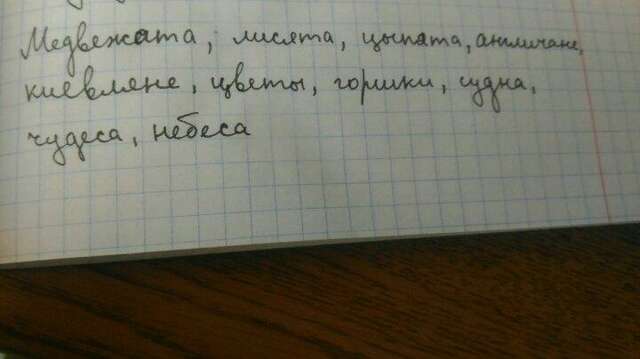 Медвежата, лисята, цыпата, англичане,
киевляне, цветы, горшки, судна,
чудеса, небеса